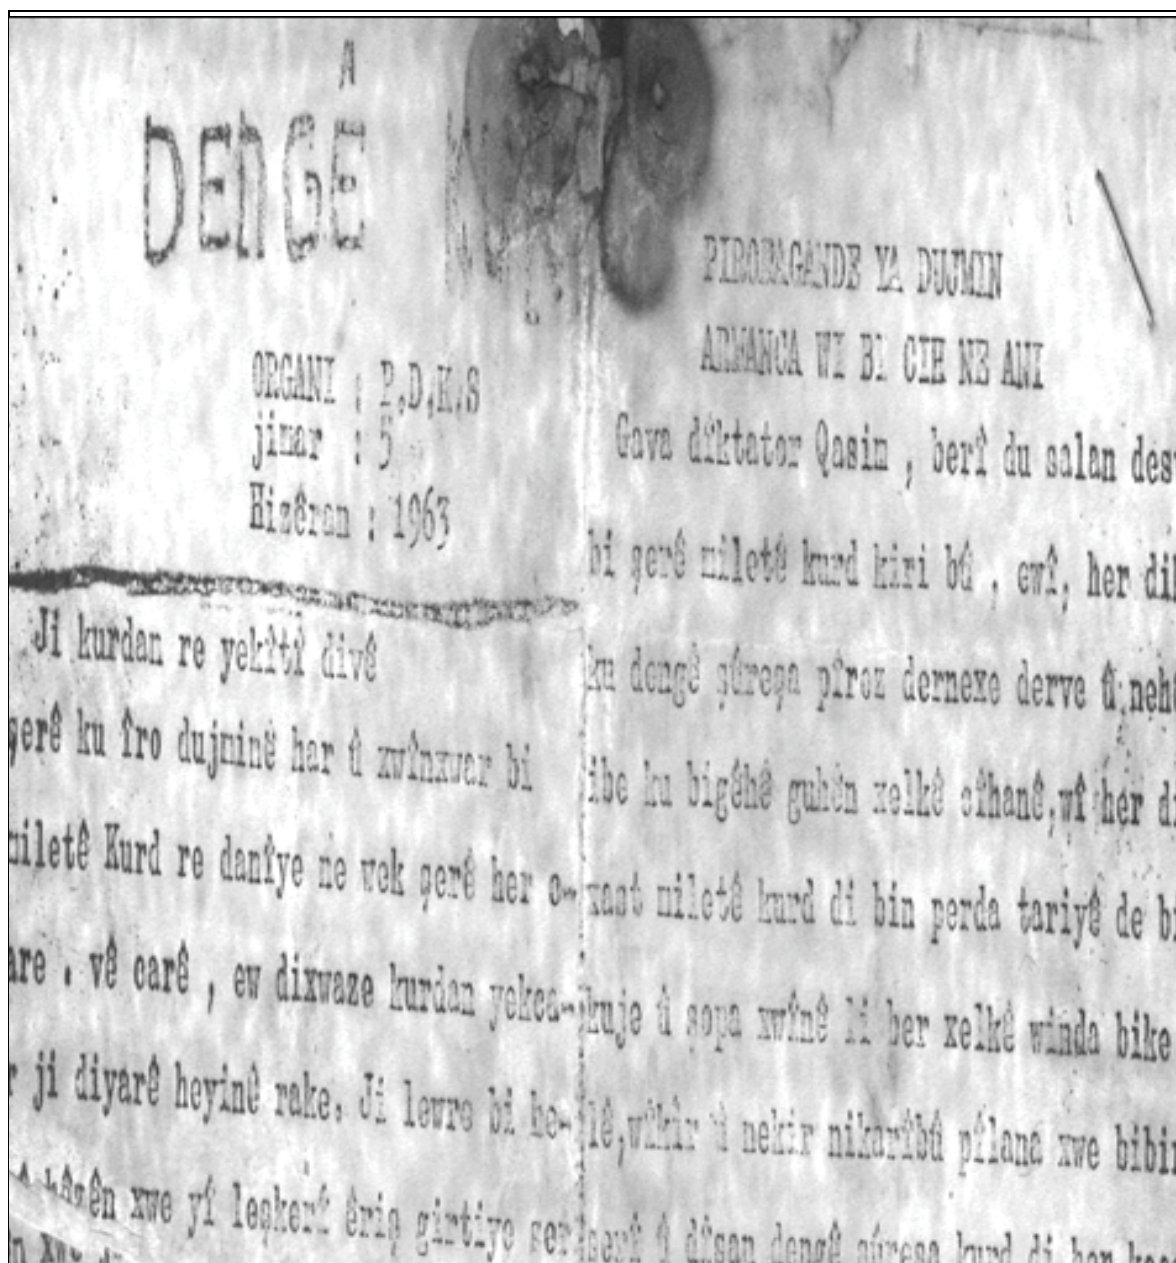 DENGÊ
ORGANI : P.D.K.S
jimar : 5
Hizêran : 1963
Ji kurdan re yekîtî divê
şerê ku îro dujminê har û xwînxwar bi
miletê Kurd re danîye ne wek şerê her c-
are . vê carê , ew dixwaze kurdan yekca-
r ji diyarê heyinê rake. Ji lewre bi he-
hêzên xwe yî leşkerî êriş girtiye ser
n xwe
PIROPAGANDE YA DUJMIN
ARMANCA WI BI CIH NE ANI
Gava dîktator Qasim , berî du salan des
bi şerê miletê kurd kiri bû , ewî, her dil
ku dengê şûreşa pîroz dernexe derve û neh
ibe ku bigêhê guhên xelkê cîhanê,wî her d
xast miletê kurd di bin perda tariyê de bi
kuje û şopa xwînê li ber xelkê winda bike
lê,wîkir û nekir nikarîbû pîlana xwe bibi
serî û dîsan dengê şûreşa kurd di her